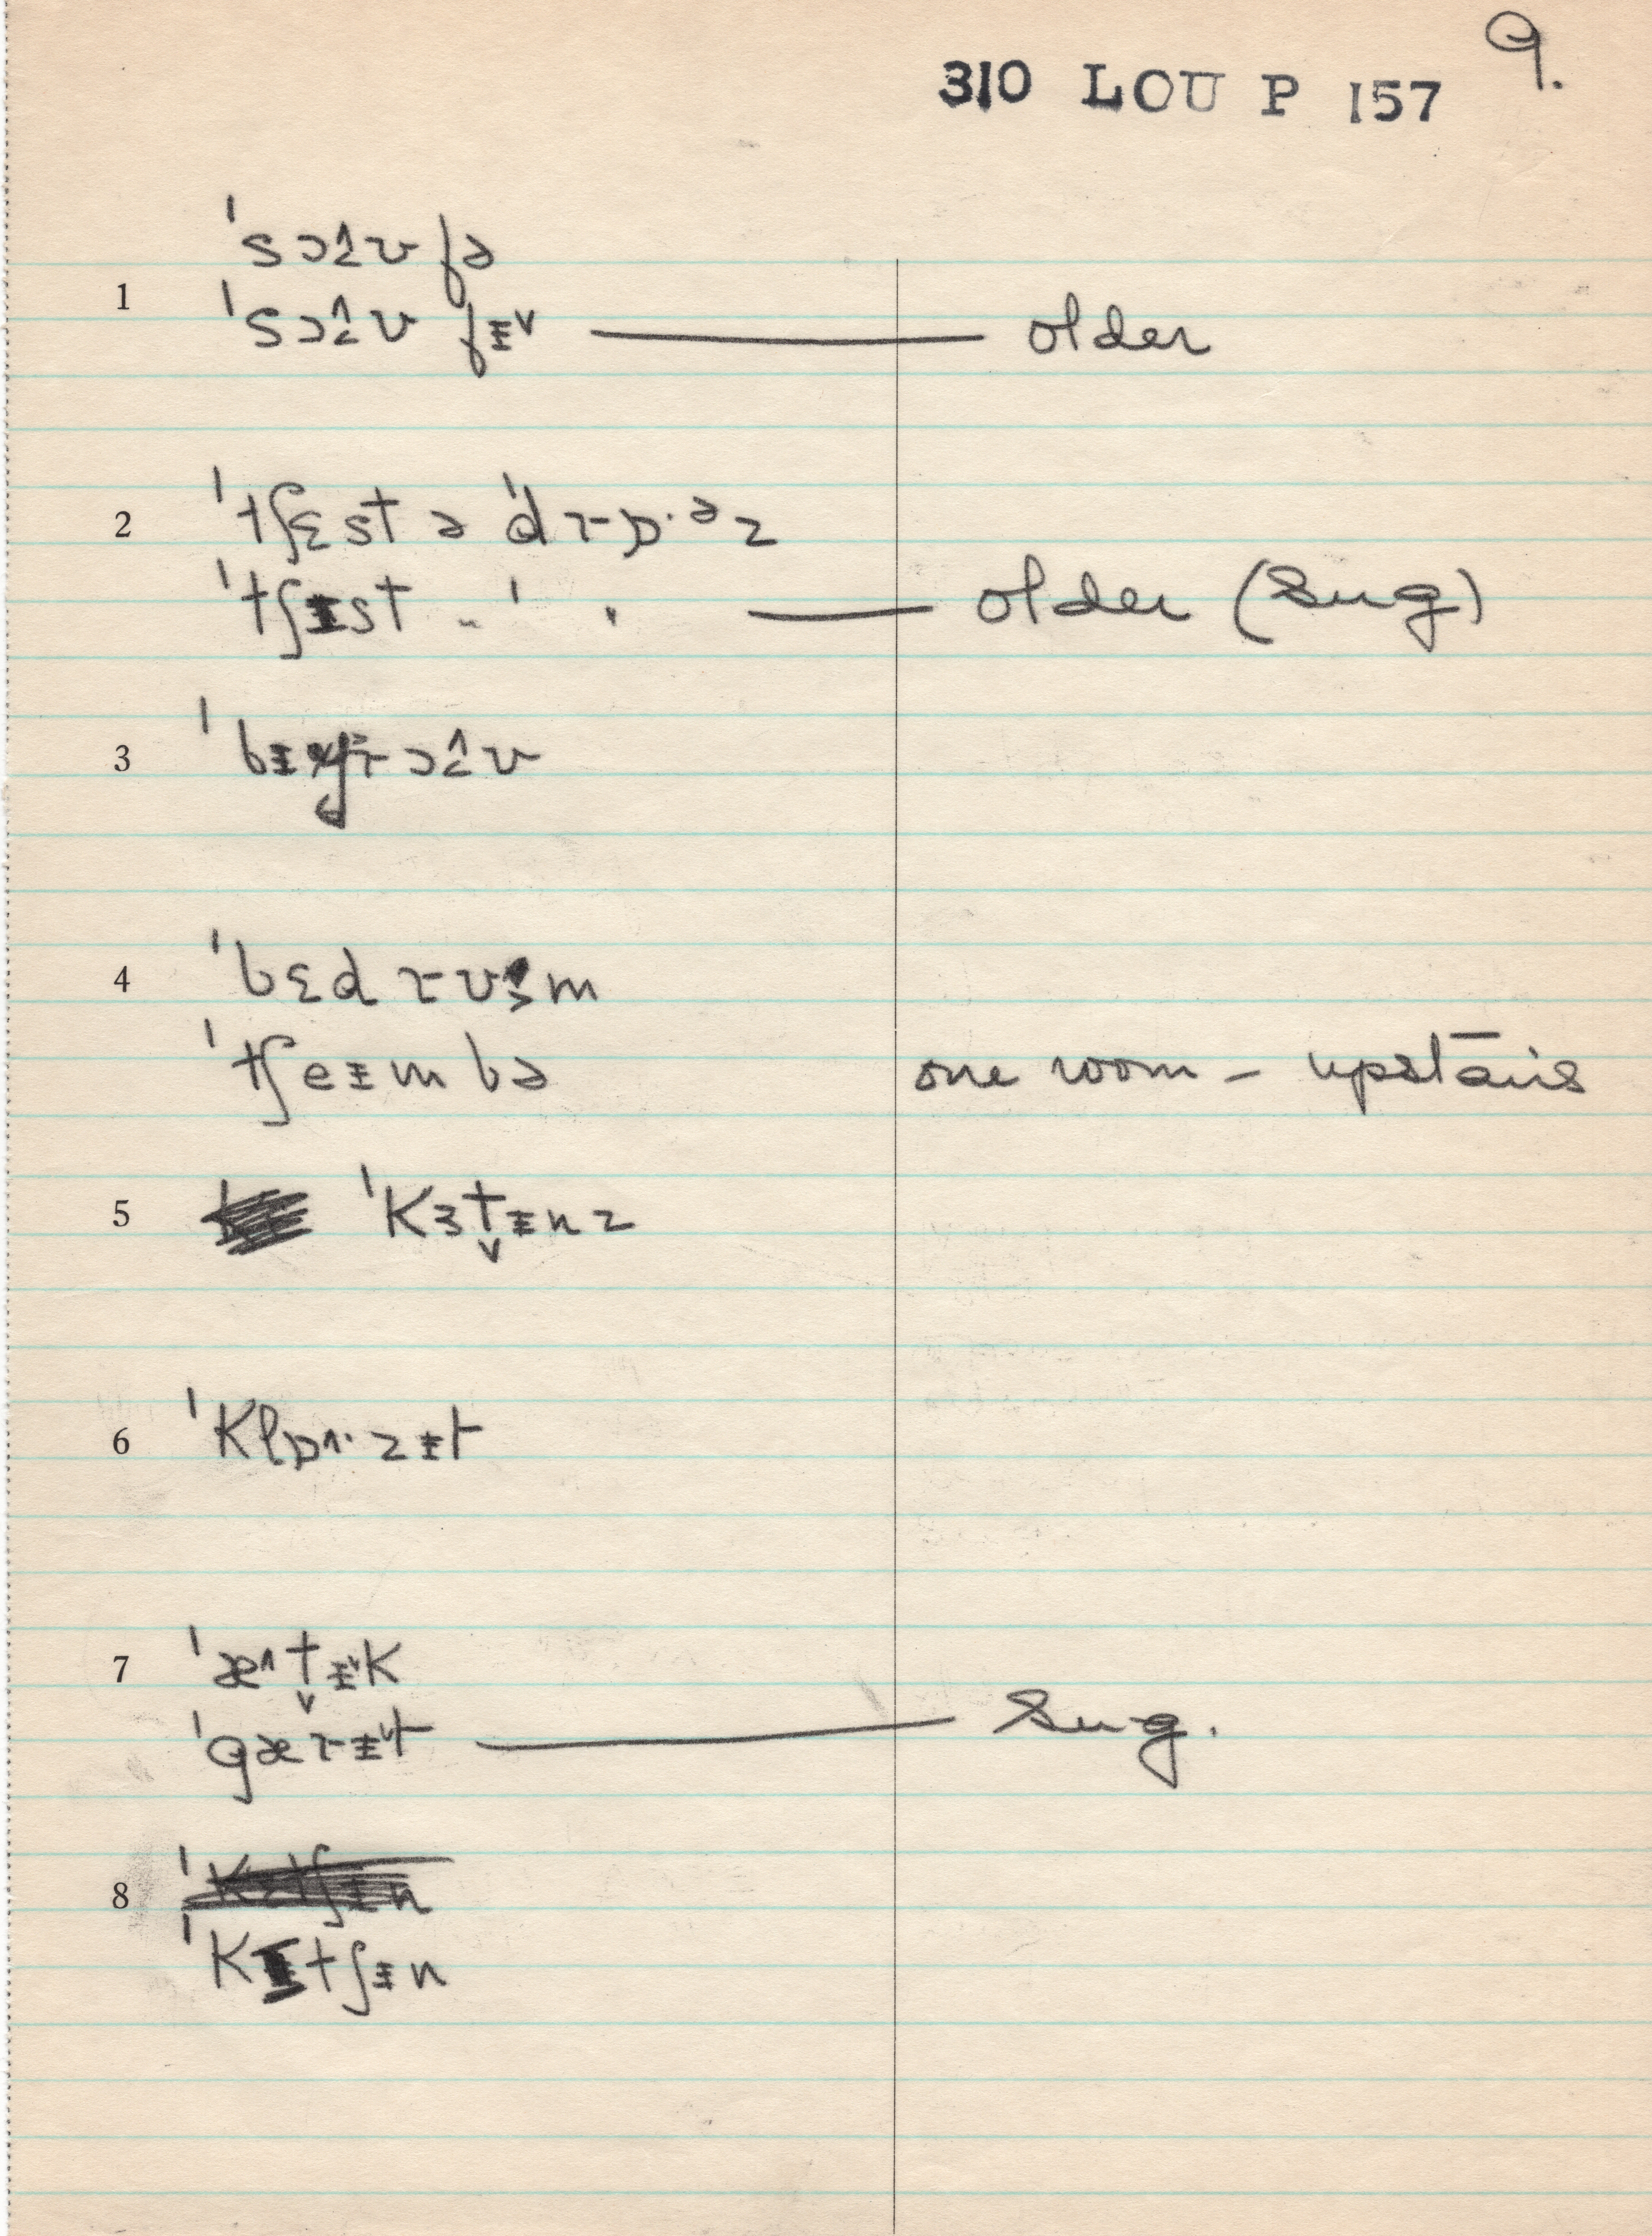 9.
310 LOU P 157
1 ˈsɔ̝ʊfə
ˈsɔ̝ʊfɪ˅ — older
2 ˈtʃɛst ə ˈdrɒ·ᵊz
ˈtʃɪst „ ˈ „ — older (sug)
3
4 ˈbɛdrʊɜm
ˈtʃeɪmbə one room – upstairs
5 ˈkɜt̬ɪnz
6 ˈklɒ˄·zɪt
7 ˈæ˄t̬ɪ˅k
ˈgærɪ˅t — sug.
8 ˈkɪtʃɪn